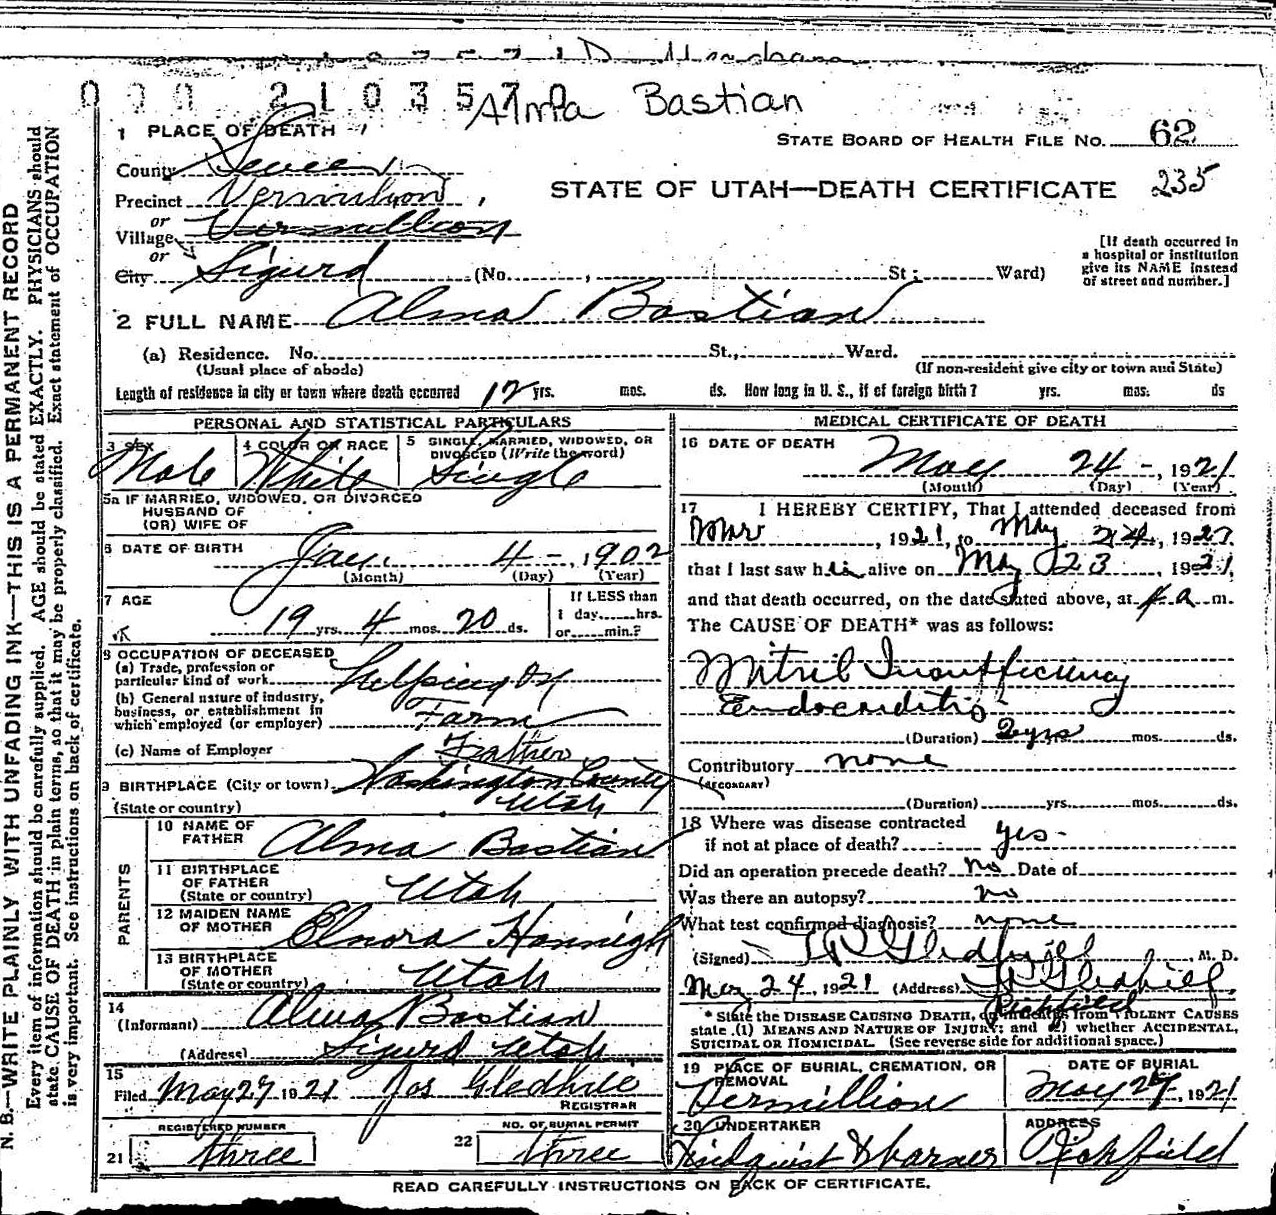 000 210357
Alma Bastian
1 PLACE OF DEATH
STATE BOARD OF HEALTH FILE No. 62
County Sevier
STATE OF UTAH—DEATH CERTIFICATE 235
Precinct Vermilion
or
Village Vermillion
or
City Sigurd (No. , St; Ward)
[If death occurred in
a hospital or institution
give its NAME instead
of street and number.]
2 FULL NAME Alma Bastian
(a) Residence. No. St., Ward.
(Usual place of abode) (If non-resident give city or town and State)
Length of residence in city or town where death occurred 12 yrs. mos. ds. How long in U. S., if of foreign birth? yrs. mos. ds
PERSONAL AND STATISTICAL PARTICULARS
3 SEX
Male
4 COLOR OR RACE
White
5 SINGLE, MARRIED, WIDOWED, OR
DIVORCED (Write the word)
Single
5a IF MARRIED, WIDOWED, OR DIVORCED
HUSBAND OF
(OR) WIFE OF
6 DATE OF BIRTH
Jan. 4 -, 1902
(Month) (Day) (Year)
7 AGE
19 yrs. 4 mos. 20 ds.
If LESS than
1 day, hrs.
or min.?
8 OCCUPATION OF DECEASED
(a) Trade, profession or
particular kind of work Helping on
(b) General nature of industry,
business, or establishment in
which employed (or employer) Farm
(c) Name of Employer Father
9 BIRTHPLACE (City or town) Washington County
(State or country) Utah
PARENTS
10 NAME OF
FATHER Alma Bastian
11 BIRTHPLACE
OF FATHER
(State or country) Utah
12 MAIDEN NAME
OF MOTHER Elnora
13 BIRTHPLACE
OF MOTHER
(State or country) Utah
14
(Informant) Alma Bastian
(Address) Sigurd Utah
15
Filed May 27 1921 Jos Gledhill
REGISTRAR
REGISTERED NUMBER
21 three
NO. OF BURIAL PERMIT
22 three
MEDICAL CERTIFICATE OF DEATH
16 DATE OF DEATH
May 24 -, 1921
(Month) (Day) (Year)
17 I HEREBY CERTIFY, That I attended deceased from
Mar , 1921, to May 24, 192
that I last saw him alive on May 23 , 1921,
and that death occurred, on the date stated above, at 4 a m.
The CAUSE OF DEATH* was as follows:
Mitral Insufficiency
Endocarditis
(Duration) 2 yrs mos. ds.
Contributory none
(SECONDARY)
(Duration) yrs. mos. ds.
18 Where was disease contracted
if not at place of death? yes-
Did an operation precede death? no Date of
Was there an autopsy? no
What test confirmed diagnosis? none
(Signed) Gledhill, M. D.
May 24, 1921 (Address) Gledhill
Richfield
* State the DISEASE CAUSING DEATH, or in deaths from VIOLENT CAUSES
state (1) MEANS AND NATURE OF INJURY; and (2) whether ACCIDENTAL,
SUICIDAL OR HOMICIDAL. (See reverse side for additional space.)
19 PLACE OF BURIAL, CREMATION, OR
REMOVAL
Vermillion
DATE OF BURIAL
May 27, 1921
20 UNDERTAKER
Lindquist & Warner
ADDRESS
Richfield
READ CAREFULLY INSTRUCTIONS ON BACK OF CERTIFICATE.
N. B.—WRITE PLAINLY WITH UNFADING INK—THIS IS A PERMANENT RECORD
Every item of information should be carefully supplied. AGE should be stated EXACTLY. PHYSICIANS should
state CAUSE OF DEATH in plain terms, so that it may be properly classified. Exact statement of OCCUPATION
is very important. See instructions on back of certificate.